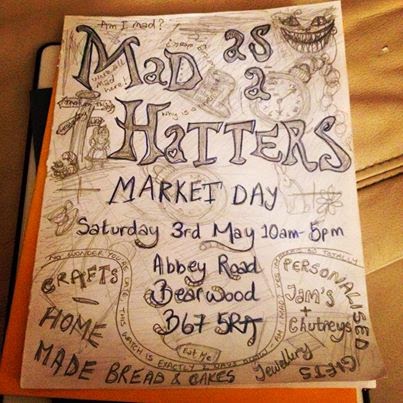 Am I mad?
we're all
mad
here!
MaD as
a
HaTTERS
MARKET DAY
Saturday 3rd May 10am-5pm
Abbey Road
Bearwood
B67 5RA
CRAFTS
-
HOME
MADE BREAD & CAKES
Eat Me!
PERSONALISED
GIFTS
Jam's
+
Chutneys
Jewellury